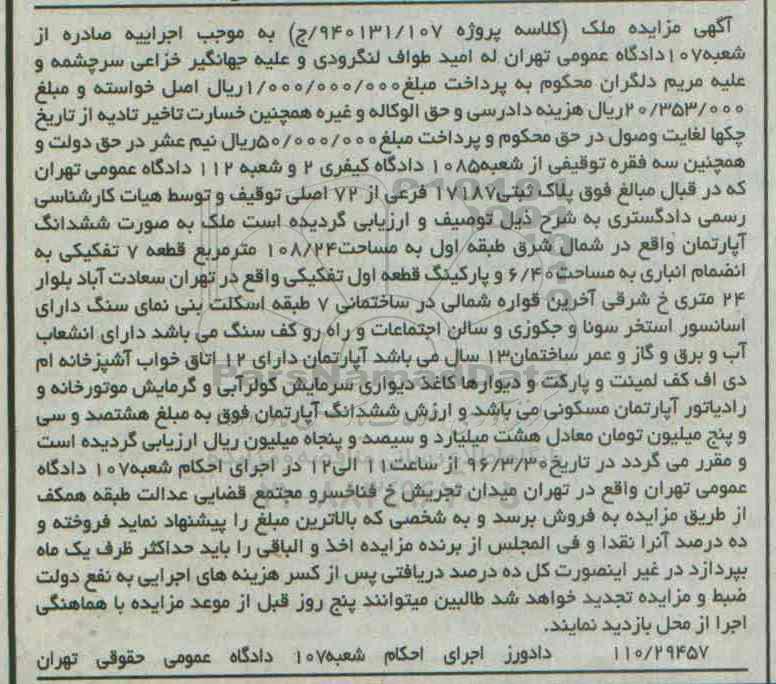 آگهی مزایده ملک (کلاسه پروژه ۹۴۰۱۳۱/۱۰۷/ج) به موجب اجراییه صادره از
شعبه۱۰۷دادگاه عمومی تهران له امید طواف لنگرودی و علیه جهانگیر خزاعی سرچشمه و
علیه مریم دلگران محکوم به پرداخت مبلغ۱/۰۰۰/۰۰۰/۰۰۰ریال اصل خواسته و مبلغ
۲۰/۳۵۳/۰۰۰ریال هزینه دادرسی و حق الوکاله و غیره همچنین خسارت تاخیر تادیه از تاریخ
چکها لغایت وصول در حق محکوم و پرداخت مبلغ۵۰/۰۰۰/۰۰۰ریال نیم عشر در حق دولت و
همچنین سه فقره توقیفی از شعبه۱۰۸۵ دادگاه کیفری ۲ و شعبه ۱۱۲ دادگاه عمومی تهران
که در قبال مبالغ فوق پلاک ثبتی۱۷۱۸۷ فرعی از ۷۲ اصلی توقیف و توسط هیات کارشناسی
رسمی دادگستری به شرح ذیل توصیف و ارزیابی گردیده است ملک به صورت ششدانگ
آپارتمان واقع در شمال شرق طبقه اول به مساحت۱۰۸/۲۴ مترمربع قطعه ۷ تفکیکی به
انضمام انباری به مساحت۶/۴۰ و پارکینگ قطعه اول تفکیکی واقع در تهران سعادت آباد بلوار
۲۴ متری خ شرقی آخرین قواره شمالی در ساختمانی ۷ طبقه اسکلت بنی نمای سنگ دارای
اسانسور استخر سونا و جکوزی و سالن اجتماعات و راه رو کف سنگ می باشد دارای انشعاب
آب و برق و گاز و عمر ساختمان۱۳ سال می باشد آپارتمان دارای ۱۲ اتاق خواب آشپزخانه ام
دی اف کف لمینت و پارکت و دیوارها کاغذ دیواری سرمایش کولرآبی و گرمایش موتورخانه و
رادیاتور آپارتمان مسکونی می باشد و ارزش ششدانگ آپارتمان فوق به مبلغ هشتصد و سی
و پنج میلیون تومان معادل هشت میلیارد و سیصد و پنجاه میلیون ریال ارزیابی گردیده است
و مقرر می گردد در تاریخ۹۶/۳/۳۰ از ساعت۱۱ الی۱۲ در اجرای احکام شعبه۱۰۷ دادگاه
عمومی تهران واقع در تهران میدان تجریش خ فناخسرو مجتمع قضایی عدالت طبقه همکف
از طریق مزایده به فروش برسد و به شخصی که بالاترین مبلغ را پیشنهاد نماید فروخته و
ده درصد آنرا نقدا و فی المجلس از برنده مزایده اخذ و الباقی را باید حداکثر ظرف یک ماه
بپردازد در غیر اینصورت کل ده درصد دریافتی پس از کسر هزینه های اجرایی به نفع دولت
ضبط و مزایده تجدید خواهد شد طالبین میتوانند پنج روز قبل از موعد مزایده با هماهنگی
اجرا از محل بازدید نمایند.
۱۱۰/۲۹۴۵۷ دادورز اجرای احکام شعبه۱۰۷ دادگاه عمومی حقوقی تهران
ParsNamadData